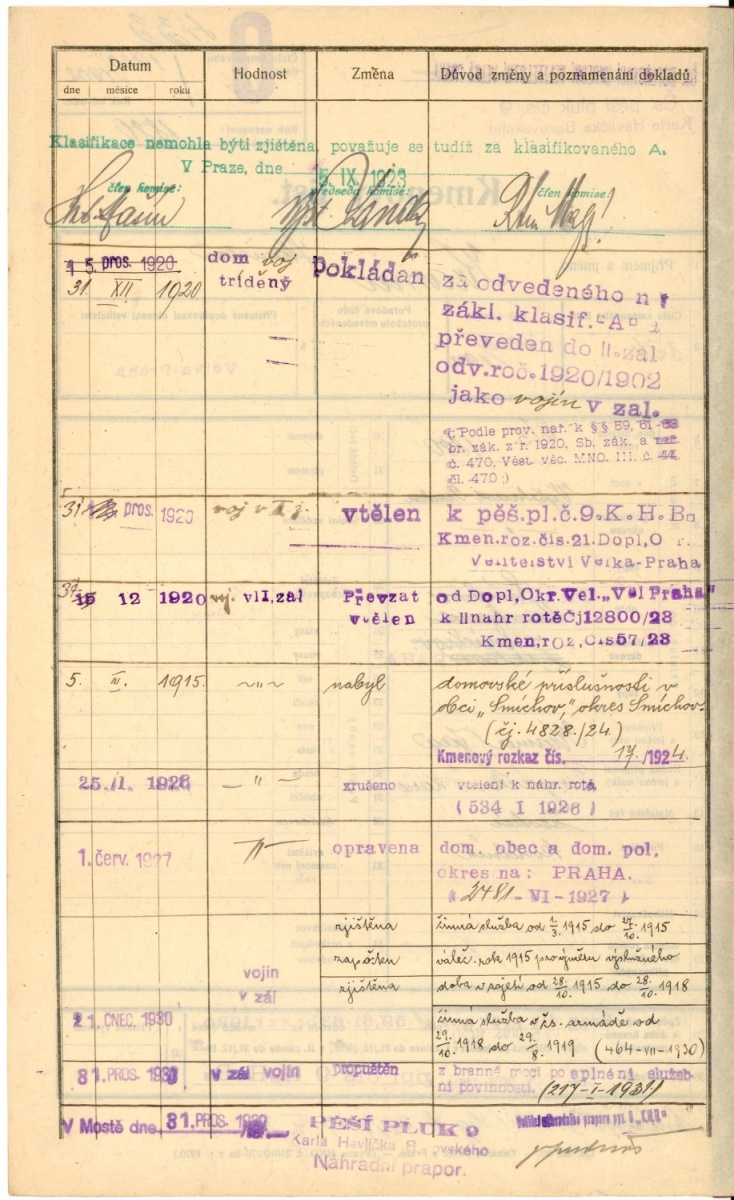 Datum
Hodnost
Změna
Důvod změny a poznamenání dokladů
dne měsíce roku
Klasifikace nemohla býti zjištěna, považuje se tudíž za klasifikovaného A.
V Praze, dne 5. IX. 1923
člen komise: předseda komise: člen komise:
15. pros. 1920
31. XII 1920
dom voj
tříděný
pokládán
za odvedeného
zákl. klasif. "A"
převeden do II. zál
odv. roč. 1920/1902
jako vojín v zal.
(Podle prov. nař. k §§ 59, 61-
br. zák. z r. 1920, Sb. zák. a nař
č. 470, Věst. věc. MNO. III. č.
čl. 470.)
31 pros. 1920
voj v II
vtělen
k pěš. pl. č. 9. K. H. B.
Kmen. roz. čís. 21. Dopl, O r.
Velitelství Velká-Praha
15 12 1920
v II, zál
Převzat
vtělen
od Dopl, Okr. Vel. „Vel Praha"
k II nahr rotě Čj 12800/23
Kmen, roz, Čis 57/23
5. III. 1915.
—„—
nabyl
domovské příslušnosti v
obci „Smíchov", okres Smíchov.
(čj. 4828./24.)
Kmenový rozkaz čís. 17. /1924.
25. I. 1926
—"—
zrušeno
vtělení k náhr. rotě
(534 I 1926)
1. červ. 1927
—"—
opravena
dom. obec a dom. pol.
okres na: PRAHA.
(2481-VI-1927)
zjištěna
činná služba od 1./3. 1915 do 27./10. 1915
započten
váleč. rok 1915 pro výměru výslužného
vojín
v zál
zjištěna
doba v zajetí od 28./10. 1915 do 28./10. 1918
21. ČNEC. 1930
činná služba v čs. armádě od
29./10. 1918 do 29./8. 1919 (464-VII-1930)
31. PROS. 1930
v zál vojín
propuštěn
z branné moci po splnění služeb
ní povinnosti. (217-I-1931.)
V Mostě dne 31. PROS. 1930
PĚŠÍ PLUK 9
Karla Havlíčka Borovského
Náhradní prapor.
Velitel náhradního praporu pp. 9 „KHB"